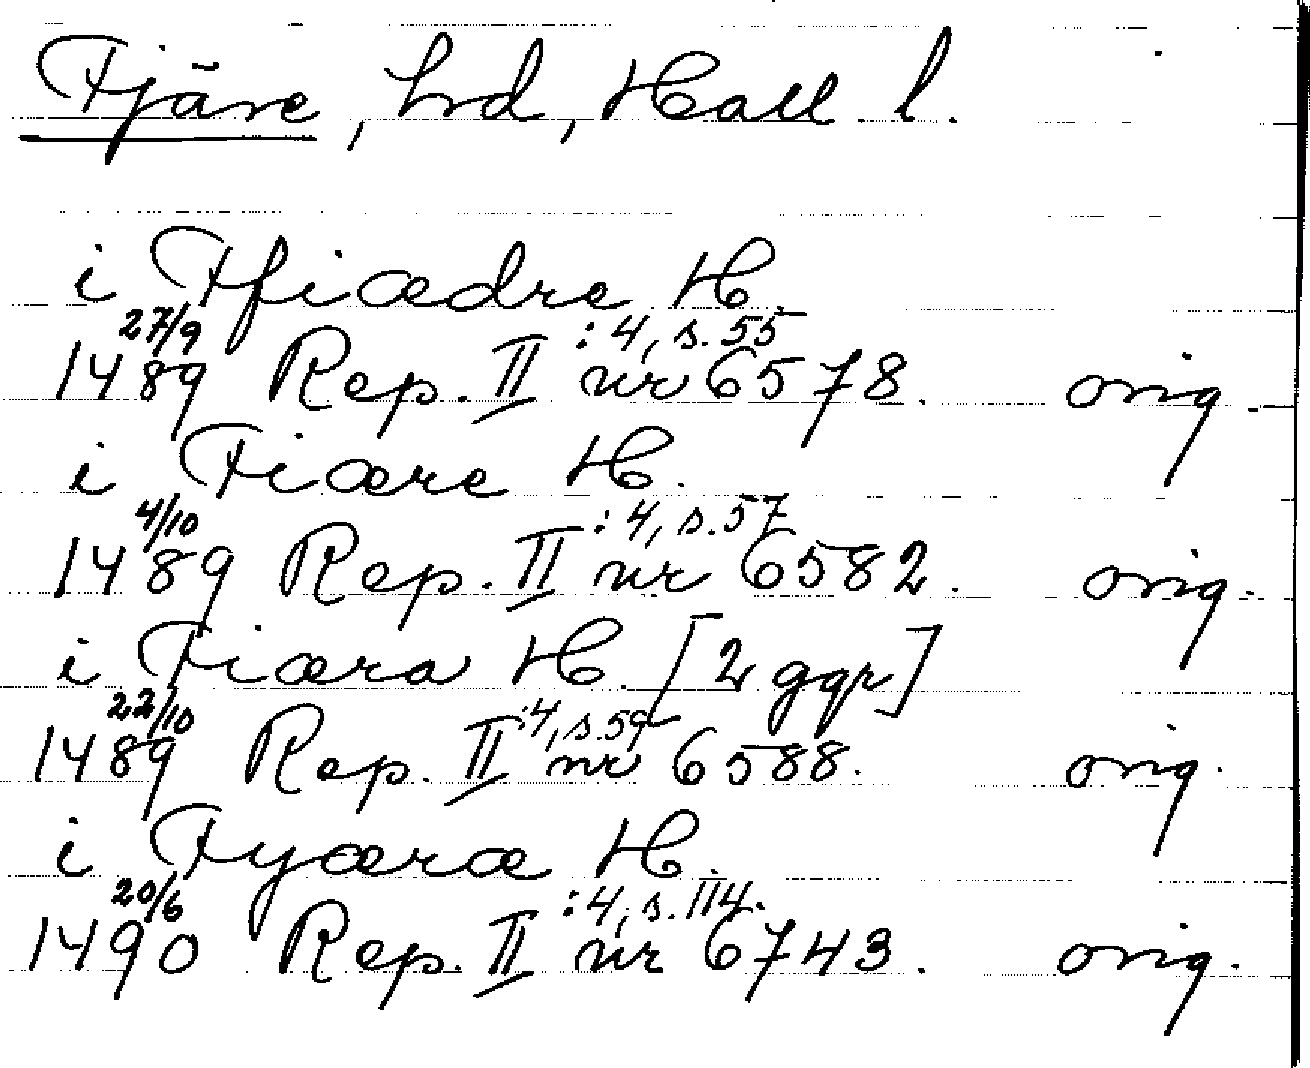 Fjäre, hd, Hall l.
i Ffiædre H.
27/9 :4, s.55
1489 Rep. II nr 6578. orig.
i Fiære H.
4/10 :4, s.57
1489 Rep. II nr 6582. orig.
i Fiæra H. [2 ggr]
22/10 :4, s.59
1489 Rep. II nr 6588. orig.
i Fyæræ H.
20/6 :4, s.114.
1490 Rep. II nr 6743. orig.